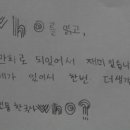 who?를 읽고,
만화로 되있어서 재미있습니
게가 있어서 한번 더 생각
who?